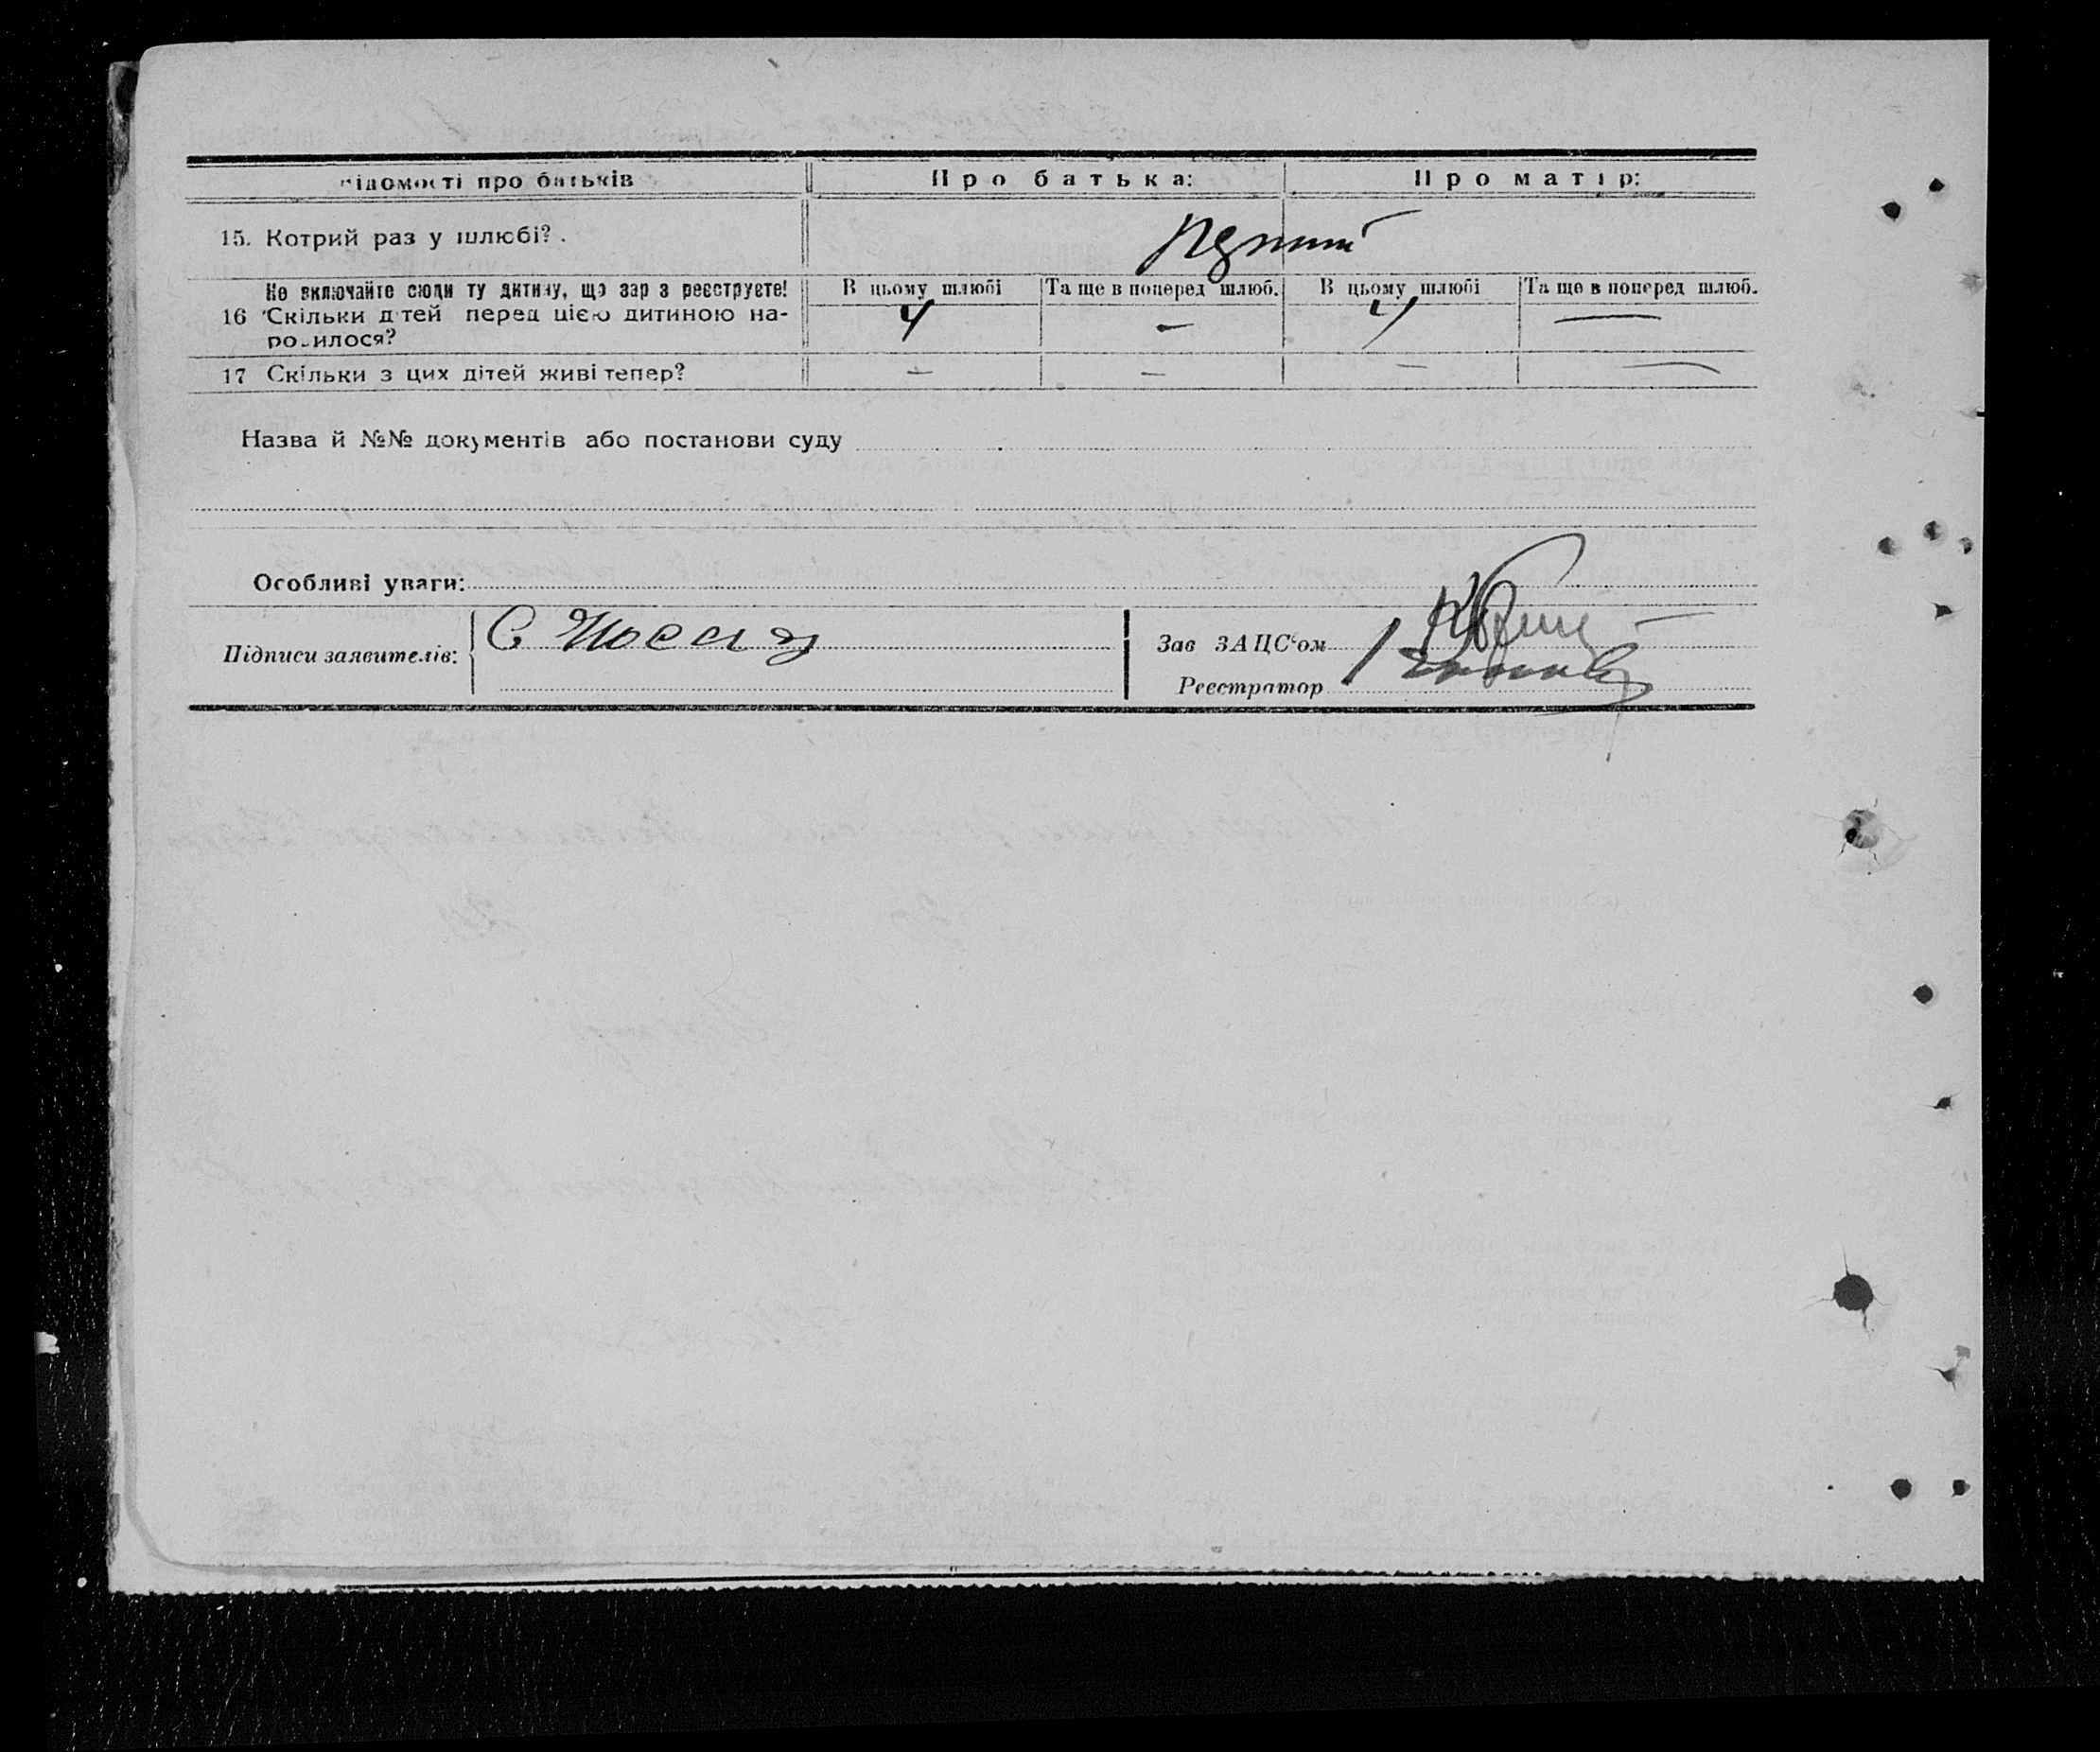 відомості про батьків Про батька: Про матір:
15. Котрий раз у шлюбі?.
Не включайте сюди ту дитину, що зар з реєструєте! В цьому шлюбі Та ще в поперед шлюб. В цьому шлюбі Та ще в поперед шлюб.
16 Скільки дітей перед цією дитиною на- 4 — 4 —
родилося?
17 Скільки з цих дітей живі тепер? — — — —
Назва й №№ документів або постанови суду
Особливі уваги:
Підписи заявителів:
Зав ЗАЦС‘ом
Реєстратор